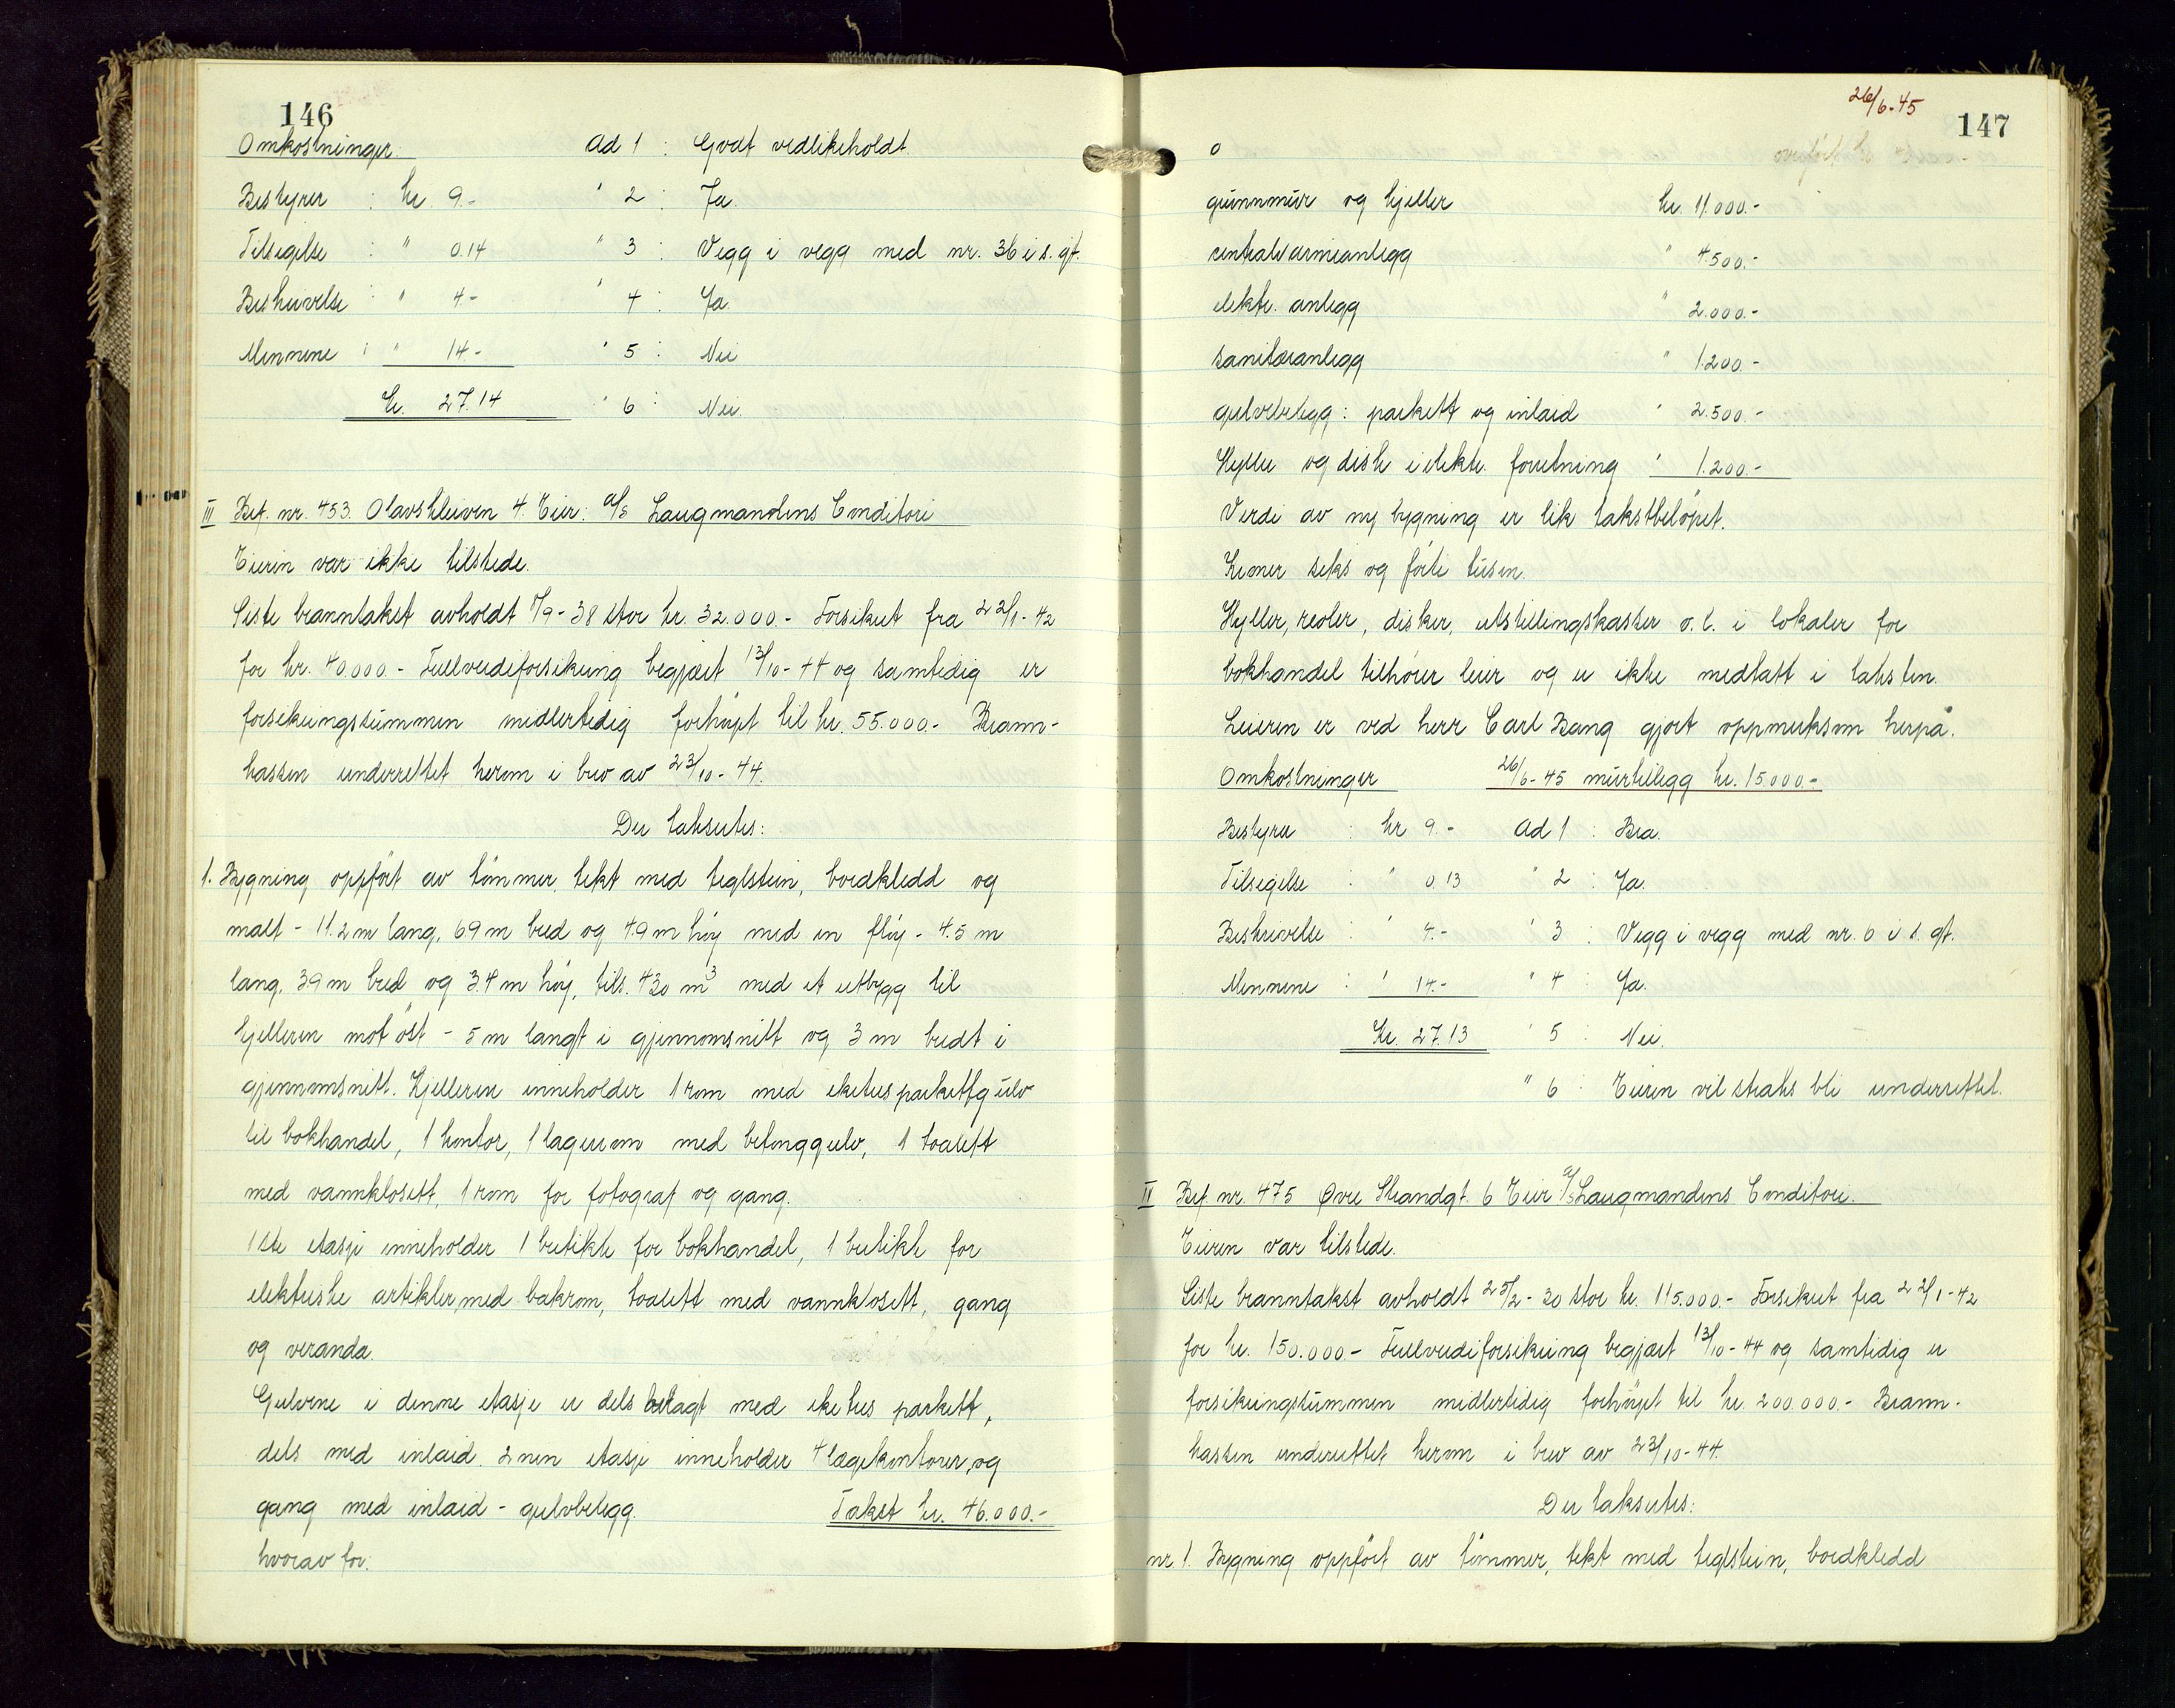 146
Omkostninger. Ad 1 : Godt vedlikeholdt
Bestyrer : kr. 9.- " 2 : Ja.
Tilsigelse : " 0.14 " 3 : Vegg i vegg med nr. 36 i s. gt.
Beskrivelse : " 4.- " 4 : Ja.
Mennene : " 14.- " 5 : Nei
Kr. 27.14 " 6 : Nei.
III Bef. nr. 453. Olavskleiven 4. Eier: A/S Laugmandens Conditori
Eieren var ikke tilstede.
Siste branntakst avholdt 7/9-38 stor kr. 32.000.- Forsikret fra 22/1-42
for kr. 40.000.- Fullverdiforsikring begjært 13/10-44 og samtidig er
forsikringssummen midlertidig forhøyet til kr. 55.000.- Brann-
kassen underrettet herom i brev av 23/10-44.
Der takseres:
1. Bygning oppført av tømmer, tekt med teglstein, bordkledd og
malt - 11.2 m lang, 6.9 m bred og 4.9 m høy med en fløy - 4.5 m
lang, 3.9 m bred og 3.4 m høy, tils. 430 m3 med et utbygg til
kjelleren mot øst - 5 m langt i gjennomsnitt og 3 m bredt i
gjennomsnitt. Kjelleren inneholder 1 rom med eketres parkettgulv
til bokhandel, 1 kontor, 1 lagerrom med betonggulv, 1 toalett
med vannklosett, 1 rom for fotograf og gang.
1ste etasje inneholder 1 butikk for bokhandel, 1 butikk for
elektriske artikler, med bakrom, toalett med vannklosett, gang
og veranda.
Gulvene i denne etasje er dels belagt med eketres parkett,
dels med inlaid. 2nen etasje inneholder 4 lægekontorer, og
gang med inlaid - gulvbelegg. Takst kr. 46.000.-
hvorav for:
26/6-45
147
grunnmur og kjeller kr. 11.000.-
sentralvarmeanlegg " 4.500.-
elektr. anlegg " 2.000.-
sanitæranlegg " 1.200.-
gulvbelegg: parkett og inlaid " 2.500.-
Hyller og disk i elektr. forretning " 1.200.-
Verdi av ny bygning er lik takstbeløpet.
Kroner seks og førti tusen.
Hyller, reoler, disker, utstillingskasser o. l. i lokaler for
bokhandel tilhører leier og er ikke medtatt i taksten.
Leieren er ved herr Carl Bang gjort oppmerksom herpå.
Omkostninger 26/6-45 murtillegg kr. 15.000.-
Bestyrer : kr 9.- Ad 1 : Bra.
Tilsigelse : " 0.13 " 2 : Ja.
Beskrivelse : " 4.- " 3 : Vegg i vegg med nr. 6 i s. gt.
Mennene : " 14.- " 4 : Ja.
Kr. 27.13 " 5 : Nei.
" 6 : Eieren vil straks bli underrettet.
II Bef. nr. 475 Øvre Strandgt. 6 Eier A/S Laugmandens Conditori.
Eieren var tilstede.
Siste branntakst avholdt 25/2-30 stor kr. 115.000.- Forsikret fra 22/1-42
for kr. 150.000.- Fullverdiforsikring begjært 13/10-44 og samtidig er
forsikringssummen midlertidig forhøyet til kr. 200.000.- Brann-
kassen underrettet herom i brev av 23/10-44.
Der takseres:
nr 1. Bygning oppført av tømmer, tekt med teglstein, bordkledd